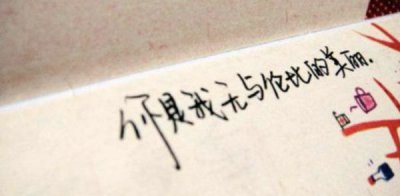 你是我无与伦比的美丽.